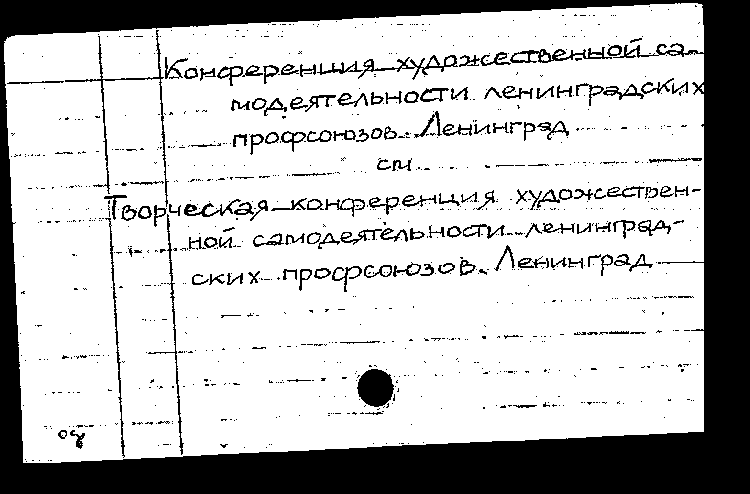 Конференция художественной са-
модеятельности ленинградских
профсоюзов. Ленинград
см.
Творческая конференция художествен-
ной самодеятельности ленинград-
ских профсоюзов. Ленинград